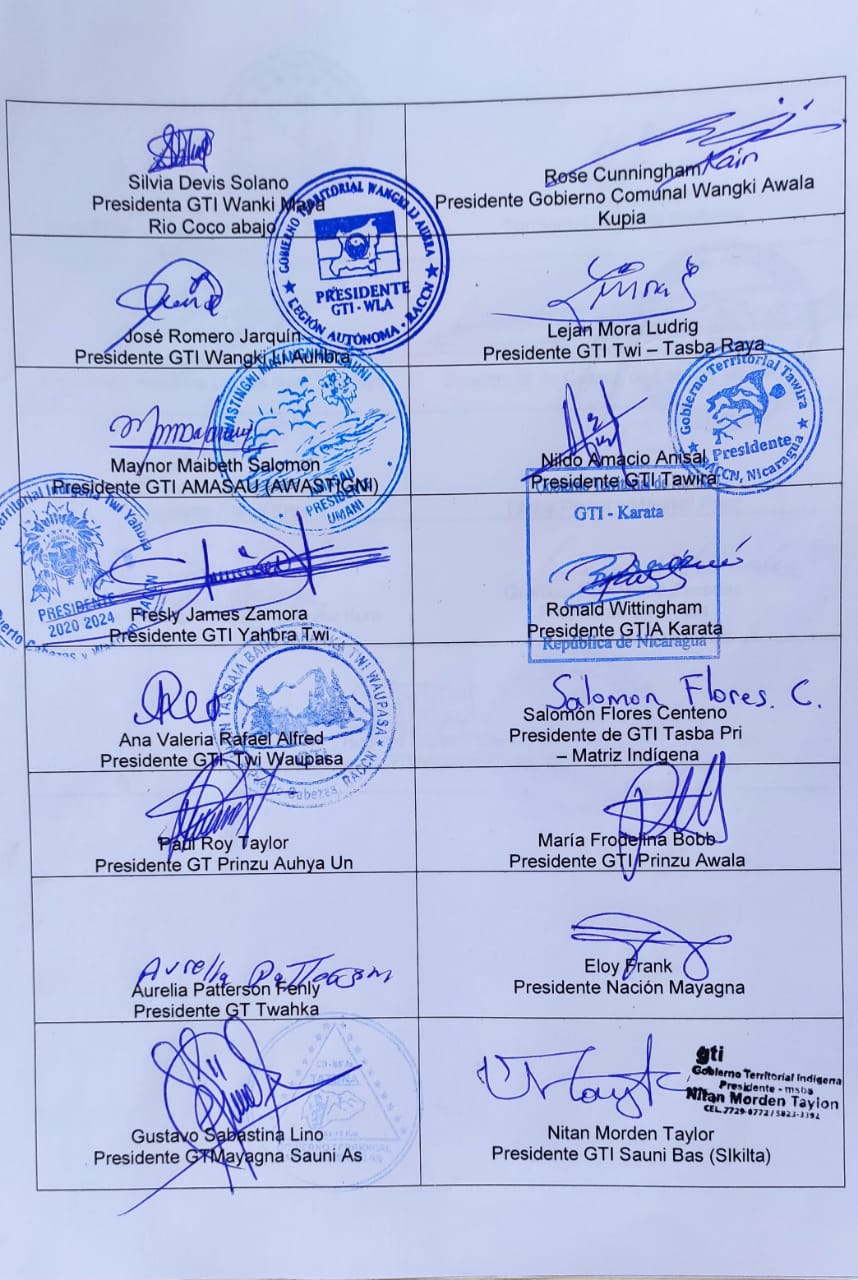 Silvia Devis Solano
Presidenta GTI Wanki Maya
Rio Coco abajo
Rose Cunningham Kain
Presidente Gobierno Comunal Wangki Awala
Kupia
GOBIERNO TERRITORIAL WANGKI LI AUBRA
PRESIDENTE
GTI - WLA
REGIÓN AUTÓNOMA - RACCN
José Romero Jarquín
Presidente GTI Wangki Li Auhbra
Lejan Mora Ludrig
Presidente GTI Twi – Tasba Raya
Maynor Maibeth Salomon
Presidente GTI AMASAU (AWASTIGNI)
AMASAU
PRESIDENTE
UMANI
Nildo Amacio Anisal
Presidente GTI Tawira
Gobierno Territorial Tawira
Presidente
RACCN, Nicaragua
Territorial Indígena Twi Yahbra
PRESIDENTE
2020 2024
Puerto Cabezas y
Fresly James Zamora
Presidente GTI Yahbra Twi
GTI - Karata
Ronald Wittingham
Presidente GTIA Karata
República de Nicaragua
Ana Valeria Rafael Alfred
Presidente GTI Twi Waupasa
TWI WAUPASA
GTI
Puerto Cabezas, RACCN
Salomon Flores. C.
Salomón Flores Centeno
Presidente de GTI Tasba Pri
– Matriz Indígena
Paul Roy Taylor
Presidente GT Prinzu Auhya Un
María Frodelina Bobb
Presidente GTI Prinzu Awala
Aurelia Patterson
Aurelia Patterson Fenly
Presidente GT Twahka
Eloy Frank
Presidente Nación Mayagna
Gustavo Sabastina Lino
Presidente GTMayagna Sauni As
gti
Gobierno Territorial Indigena
Presidente - msba
Nitan Morden Taylon
CEL. 7729-0772 / 5823-3392
Nitan Morden Taylor
Presidente GTI Sauni Bas (SIkilta)